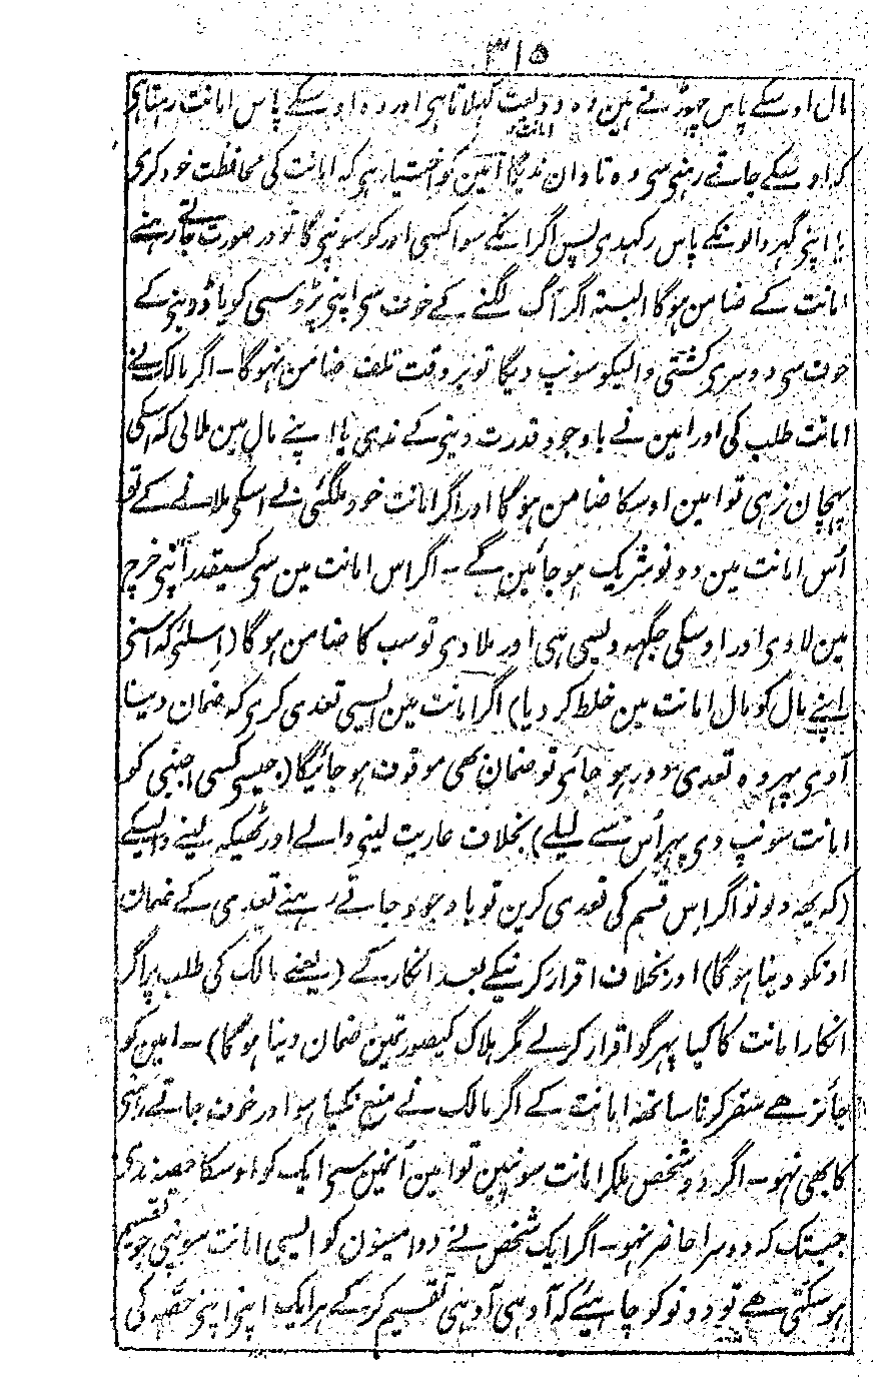 ۳۱۵
مال اوسکے پاس چهوڑتے ہین وہ ودیعت کہلاتا ہی اور وہ اوسکے پاس امانت رہتا ہی
کہ اوسکے جاتے رہنی سی وہ تاوان ندیگا امین کو اختیار ہی کہ امانت کی محافظت خود کری
یا اپنی گہر والونکے پاس رکہدی پس اگر انکے سوا کسی اور کو سونپی گا تو در صورت جاتے رہنے
امانت کے ضامن ہوگا البتہ اگر آگ لگنے کے خوف سی اپنی پڑوسی کو یا ڈوبنی کے
خوف سی دوسری کشتی والیکو سونپ دیگا تو بر وقت تلف ضامن نہوگا ۔ اگر مالک نے
امانت طلب کی اور امین نے باوجود قدرت دینی کے ندی یا اپنے مال مین ملالی کہ اسکی
پہچان نرہی تو امین اوسکا ضامن ہوگا اور اگر امانت خود ملگئی بے اسکی ملانے کے تو
اُس امانت مین دونو شریک ہو جائین گے ۔ اگر اس امانت مین سی کسیقدر اپنی خرچ
مین لاوی اور اوسکی جگہہ ویسی ہی اور ملا دی تو سب کا ضامن ہوگا (اسلئی کہ اسنی
اپنے مال کو مال امانت مین خلط کر دیا) اگر امانت مین ایسی تعدی کری کہ ضمان دینا
آوی پہر وہ تعدی دور ہو جائی تو ضمان بھی موقوف ہو جائیگا (جیسی کسی اجنبی کو
امانت سونپ دی پہر اُس سے لیلے) بخلاف عاریت لینی والے اور ٹھیکہ لینے والیکے
(کہ یہہ دونو اگر اس قسم کی تعدی کرین تو باوجود جاتے رہنے تعدی کے ضمان
اونکو دینا ہوگا) اور بخلاف اقرار کرنیکے بعد انکار کے (یعنے مالک کی طلب پر اگر
انکار امانت کا کیا پہر گو اقرار کرلے مگر ہلاک کیصورتمین ضمان دینا ہوگا) ۔ امین کو
جائز ہے سفر کرنا ساتھہ امانت کے اگر مالک نے منع نکیا ہو اور خوف جاتے رہنی
کا بھی نہو ۔ اگر دو شخص ملکر امانت سونپین تو امین انمین سی ایک کو اوسکا حصہ ندی
جبتک کہ دوسرا حاضر نہو ۔ اگر ایک شخص نے دو امینون کو ایسی امانت سونپی جو تقسیم
ہو سکتی ہے تو دونو کو چاہیئے کہ آدہی آدہی تقسیم کر کے ہر ایک اپنی اپنی حصہ کی